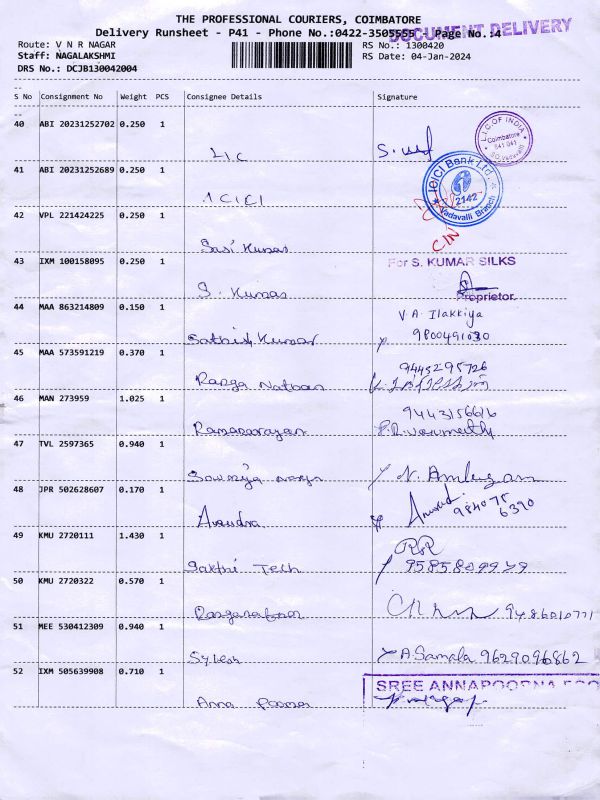 THE PROFESSIONAL COURIERS, COIMBATORE
Delivery Runsheet - P41 - Phone No.:0422-3505555 Page No.:4
DOCUMENT DELIVERY
Route: V N R NAGAR
RS No.: 1300420
Staff: NAGALAKSHMI
RS Date: 04-Jan-2024
DRS No.: DCJB130042004
S No Consignment No Weight PCS Consignee Details Signature
40 ABI 20231252702 0.250 1
LIC
L.I.C OF INDIA
Coimbatore
641 041
S.O. Vadavalli
41 ABI 20231252689 0.250 1
ICICI
ICICI Bank Ltd.
2142
Vadavalli Branch
42 VPL 221424225 0.250 1
Sasi Kumar
CIN
43 IXM 100158095 0.250 1
S. Kumar
For S. KUMAR SILKS
Proprietor
44 MAA 863214809 0.150 1
Sathish Kumar
V.A. Ilakkiya
9800491030
45 MAA 573591219 0.370 1
Ranga Nathan
9445295726
46 MAN 273959 1.025 1
Ramanarayan
9443156616
47 TVL 2597365 0.940 1
Sowmya
N. Anbugan
48 JPR 502628607 0.170 1
Anandra
984075
6390
49 KMU 2720111 1.430 1
Sakthi Tech
9585809979
50 KMU 2720322 0.570 1
9486010771
51 MEE 530412309 0.940 1
Sylesh
A.Samala 9629096862
52 IXM 505639908 0.710 1
Anna Poorna
SREE ANNAPOORNA